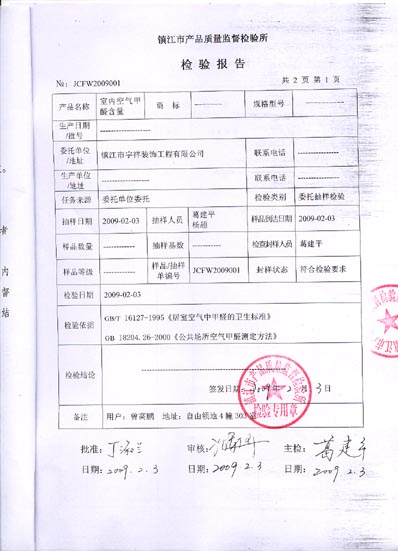 镇江市产品质量监督检验所
检 验 报 告
№: JCFW2009001 共 2 页 第 1 页
产品名称 室内空气甲醛含量 商 标 ---------- 规格型号 ----------
生产日期/批号 ----------
委托单位/地址 镇江市宇祥装饰工程有限公司 联系电话 ----------
生产单位/地址 ---------- 联系电话 ----------
任务来源 委托单位委托 检验类别 委托抽样检验
抽样日期 2009-02-03 抽样人员 葛建平 杨超 样品到达日期 2009-02-03
样品数量 ---------- 抽样基数 ---------- 检查封样人员 葛建平
样品等级 ---------- 样品/抽样单编号 JCFW2009001 封样状态 符合检验要求
检验日期 2009-02-03
检验依据 GB/T 16127-1995《居室空气中甲醛的卫生标准》
GB 18204.26-2000《公共场所空气甲醛测定方法》
检验结论 ----------
签发日期 2009 年 2 月 3 日
镇江市产品质量监督检验所
检验专用章
备注 用户：曾高鹏 地址：自由领地 4 幢 303
批准： 审核： 主检：葛建平
日期：2009.2.3 日期：2009.2.3 日期：2009.2.3
者
内
督
结